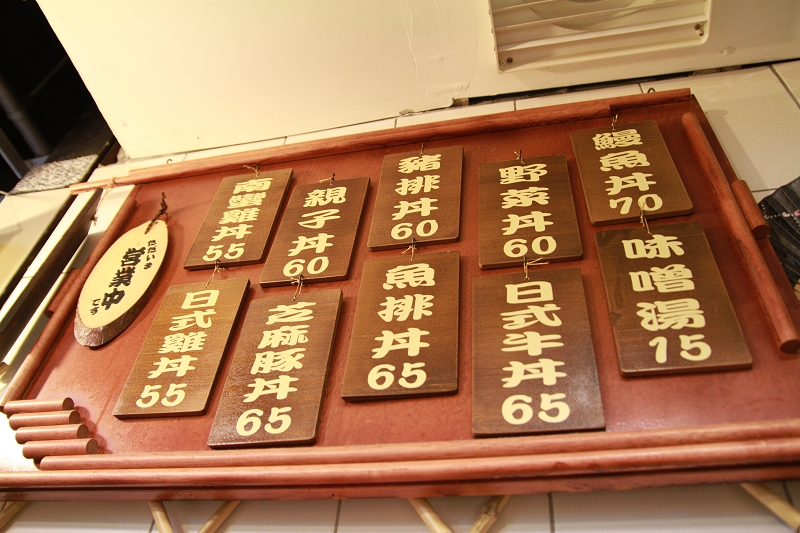 ただいま
営業中
南蠻雞丼
55
親子丼
60
豬排丼
60
野菜丼
60
鰻魚丼
70
日式雞丼
55
芝麻豚丼
65
魚排丼
65
日式牛丼
65
味噌湯
15